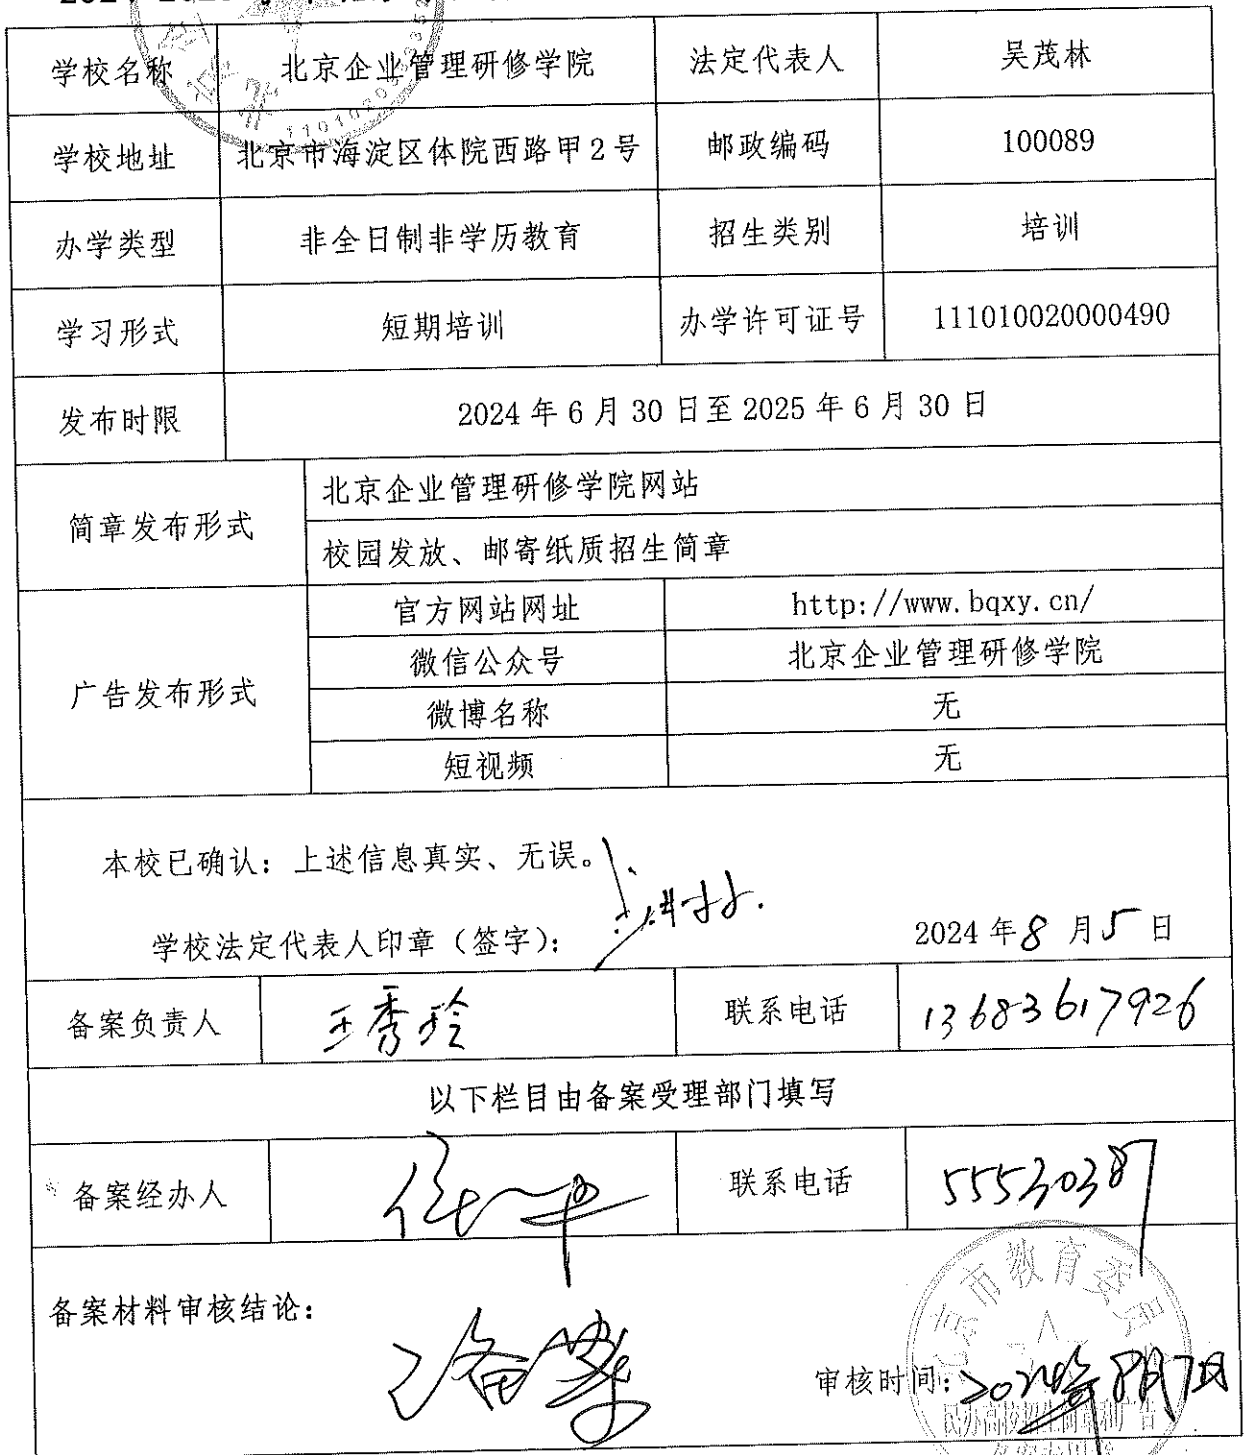 学校名称 北京企业管理研修学院 法定代表人 吴茂林
学校地址 北京市海淀区体院西路甲2号 邮政编码 100089
办学类型 非全日制非学历教育 招生类别 培训
学习形式 短期培训 办学许可证号 111010020000490
发布时限 2024年6月30日至2025年6月30日
简章发布形式 北京企业管理研修学院网站
校园发放、邮寄纸质招生简章
广告发布形式 官方网站网址 http://www.bqxy.cn/
微信公众号 北京企业管理研修学院
微博名称 无
短视频 无
本校已确认：上述信息真实、无误。
学校法定代表人印章（签字）： 2024年8月5日
备案负责人 王秀玲 联系电话 13683617926
以下栏目由备案受理部门填写
备案经办人 联系电话 55530387
备案材料审核结论：
已备案
审核时间：2024年8月7日
北京市教育委员会
民办高校招生简章和广告
备案专用章